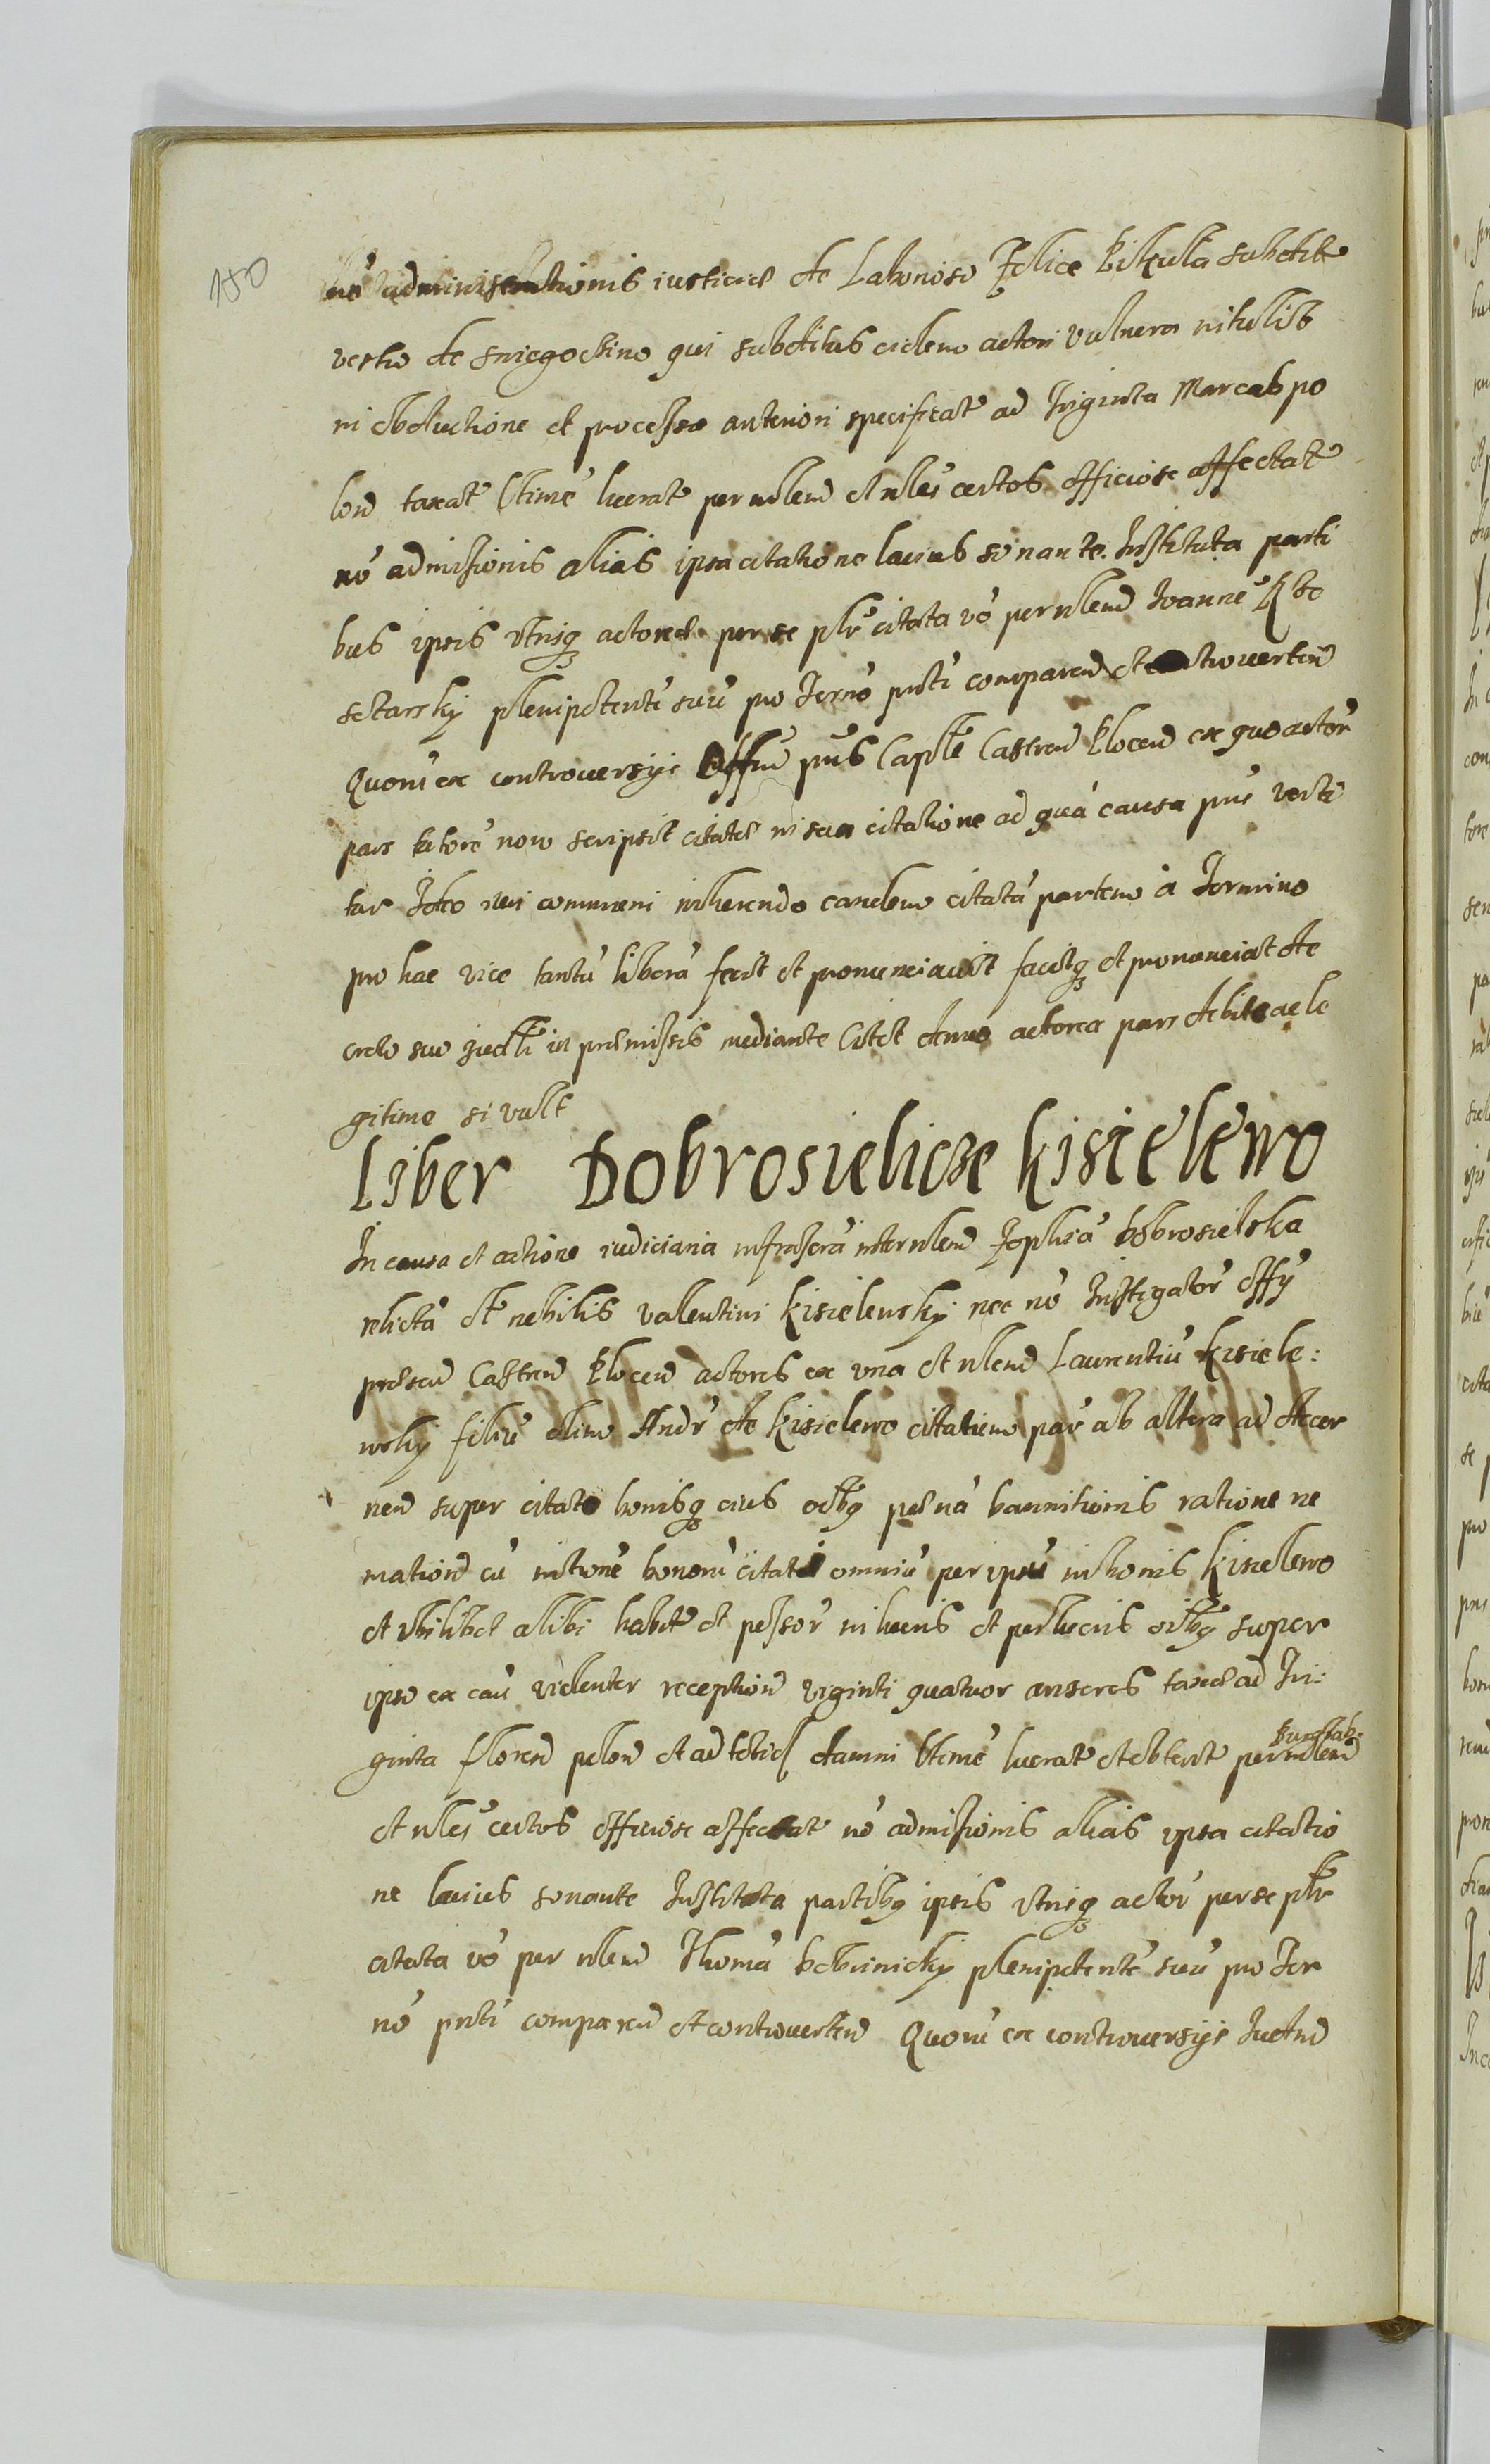 150
administrationis iusticiae de Laborioso Felice Pikula subdit
de Sniegockino qui subditus eidem actori vulnera
in obductione et processu anteriori specificat ad triginta Marcas po
lon taxat ltime lucrat per nlem et nles certos officiose affectat
nō admissionis alias ipsa citatione latius sonante. Instituta parti
bus ipsis vtrisq actorea per se plr citata vō per nlem Joannē
plenipotentē suū pro Termō pnti comparen et controverten
Quorū ex controversijs Offm pns Capte Castren Plocen ex quo actor
pars tutorē non scripsit citatae in sua citatione ad quā causa pns verti
tur Ideo iuri communi inhaerendo eandem citatā partem à Termino
pro hac vice tantū liberā fecit et pronunciavit facitq et pronunciat de
creto suo in praemissis mediante Citet denuo actorea pars debite ac le
gitime si vult
Liber Dobrosielicze Kisielewo
In causa et actione iudiciaria infrascrā inter nlem Zophiā Dobrosielska
relictā ol nobilis Valentini Kisielewsky nec nō Instigatorē offy
praesen Castren Plocen actores ex vna et nlem Laurentiū Kisiele:
wsky filiū olim Andr de Kisielewo citatum par ab altera ad decer
nen super citato bonisq eius oibq paenā bannitionis ratione ne
mation cū bonorū citati omniū per ipsū in bonis Kisielewo
et vbilibet alibi habit et possor in lucris et perlucris oibq super
ipso ex cau violenter reception viginti quatuor anseres taxae ad Tri:
ginta floren polon et ad totid damni ltime lucrat et obtent per nlem
et nles certos officiose affectat nō admissionis alias ipsa citatio
ne latius sonante Instituta partibq ipsis vtrisq actor per se plr
citata vō per nlem Thomā plenipotentē suū pro Ter
nō pnti comparen et controverten Quorū ex controversijs Iudm